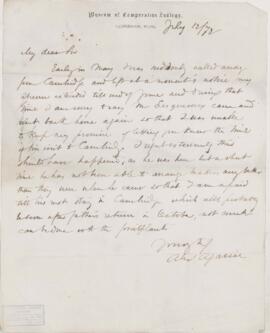 Museum of Comparative Zoölogy,
Cambridge, Mass.,
July 12/72
My dear Sir
Early in May I was suddenly called away
from Cambridge and left at a moment's notice my
absence extended till end of June and during that
time I am sorry to say Mr Burgess came and
went back home again so that I was unable
to keep my promise of letting you know the time
of his visit to Cambridge I regret extremely this
should have happened, as he was here but a short
time he has not been able to arrange matters any better
than they were when he came so that I am afraid
till his next stay in Cambridge which will probably
be soon after father's return in October, not much
can be done with the
Yours truly
Alex Agassiz